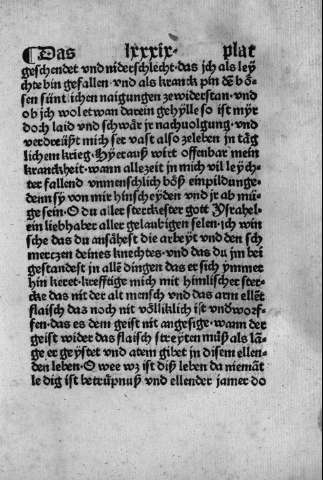 ¶Das lxxxix· plat
geschendet vnd niderschlecht·das jch als leẏ
chte bin gefallen·vnd als kranck pin dē bȫ
sen sünt lichen naigungen zewiderstan·vnd
ob jch wol etwan darein gehylle so ist mẏr
doch laid vnd schwär jr nachuolgung·vnd
verdreüßt mich ser vast also zeleben jn täg
lichem krieg·Hẏerauß wirt offenbar mein
kranckheit·wann allezeit jn mich vil leẏch·
ter fallend vnmenschlich böß einpildunge·
denn sẏ von mir hinscheẏden vnd jr ab mü
ge sein·O du aller sterckester gott Ẏsrahel·
ein liebhaber aller gelaubigen selen·jch win
sche das du ansähest die arbeẏt vnd den sch
mertzen deines knechtes·vnd das du jm bei
gestandest jn allē dingen das er sich ẏmmer
hin keret·krefftige mich mit himlischer ster
cke das nit der alt mensch vnd das arm ellēt
flaisch das noch nit völliklich ist vnd̄worf
fen·das es dem geist nit angesige·wann der
geist wider das flaisch streẏten muß als lā
ge er geẏstet vnd atem gibet jn disem ellen
den leben·O wee wz ist diß leben da niemāt
le dig ist betrüpnuß vnd ellender jamer do